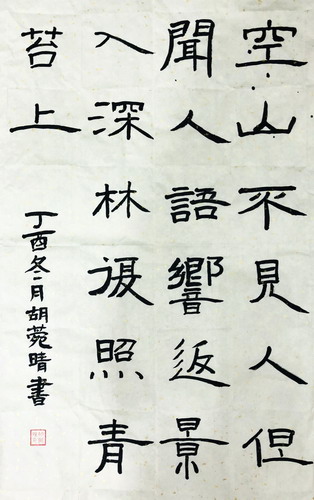 空山不見人但
聞人語響返景
入深林復照青
苔上
丁酉冬二月胡菀晴書